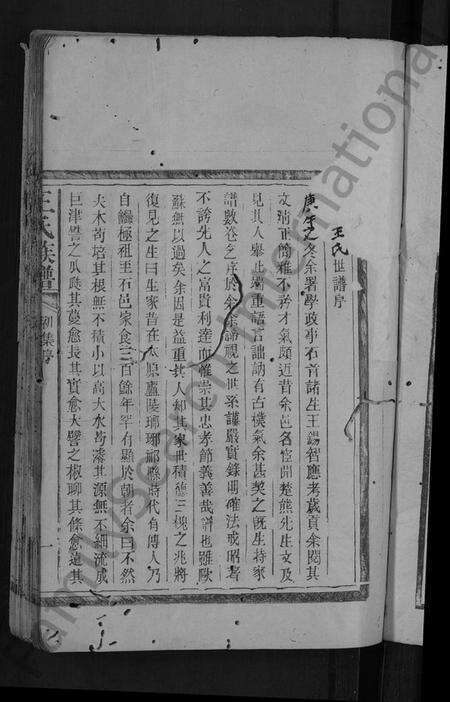 王氏世譜序
庚午之冬余署學政事石首諸生王錫智應考歲貢余閱其
文淸正簡雅不矜才氣頗近昔余邑名宦開楚熊先生文及
見其人舉止端重語言訥訥有古樸氣余甚契之旣生持家
譜數卷乞序於余余諦視之世系謹嚴實錄明確法戒昭著
不誇先人之富貴利達而惟崇其忠孝節義善哉譜也雖歐
蘇無以過矣余因是益重其人却其家世積德三槐之兆將
復見之生曰生家昔在太原廬陵瑯琊歷時代有傳人乃
自極祖主石邑家食三百餘年罕有顯於朝者余曰不然
夫木苟培其根無不積小以高大水苟濬其源無不細流成
巨津譬之瓜瓞其蔓愈長其實愈大譬之椒聊其條愈遠其
王氏族譜
初集序
一
Family Search International